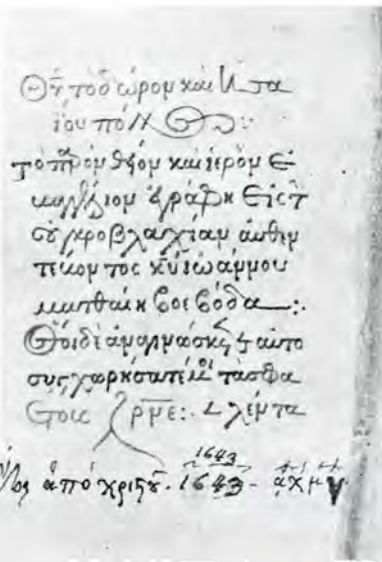 Θῦ τὸ δῶρον καὶ
ίου πόν
τὸ παρὸν θεῖον καὶ ἱερὸν Εὐ
αγγέλιον ἐγράφη Εἰς τ
οὐγκροβλαχίαν αὐθεν
τεύοντος κυ ἰωάννου
ματθαίου βοεβόδα :.
Οἱ δὲ ἀναγινώσκοντες αὐτὸ
συγχωρήσατέ μοι τὰ σφα
Ετοις ζρμε:. λέντα
1643
ἀπὸ χριστοῦ. 1643 - αχμγ